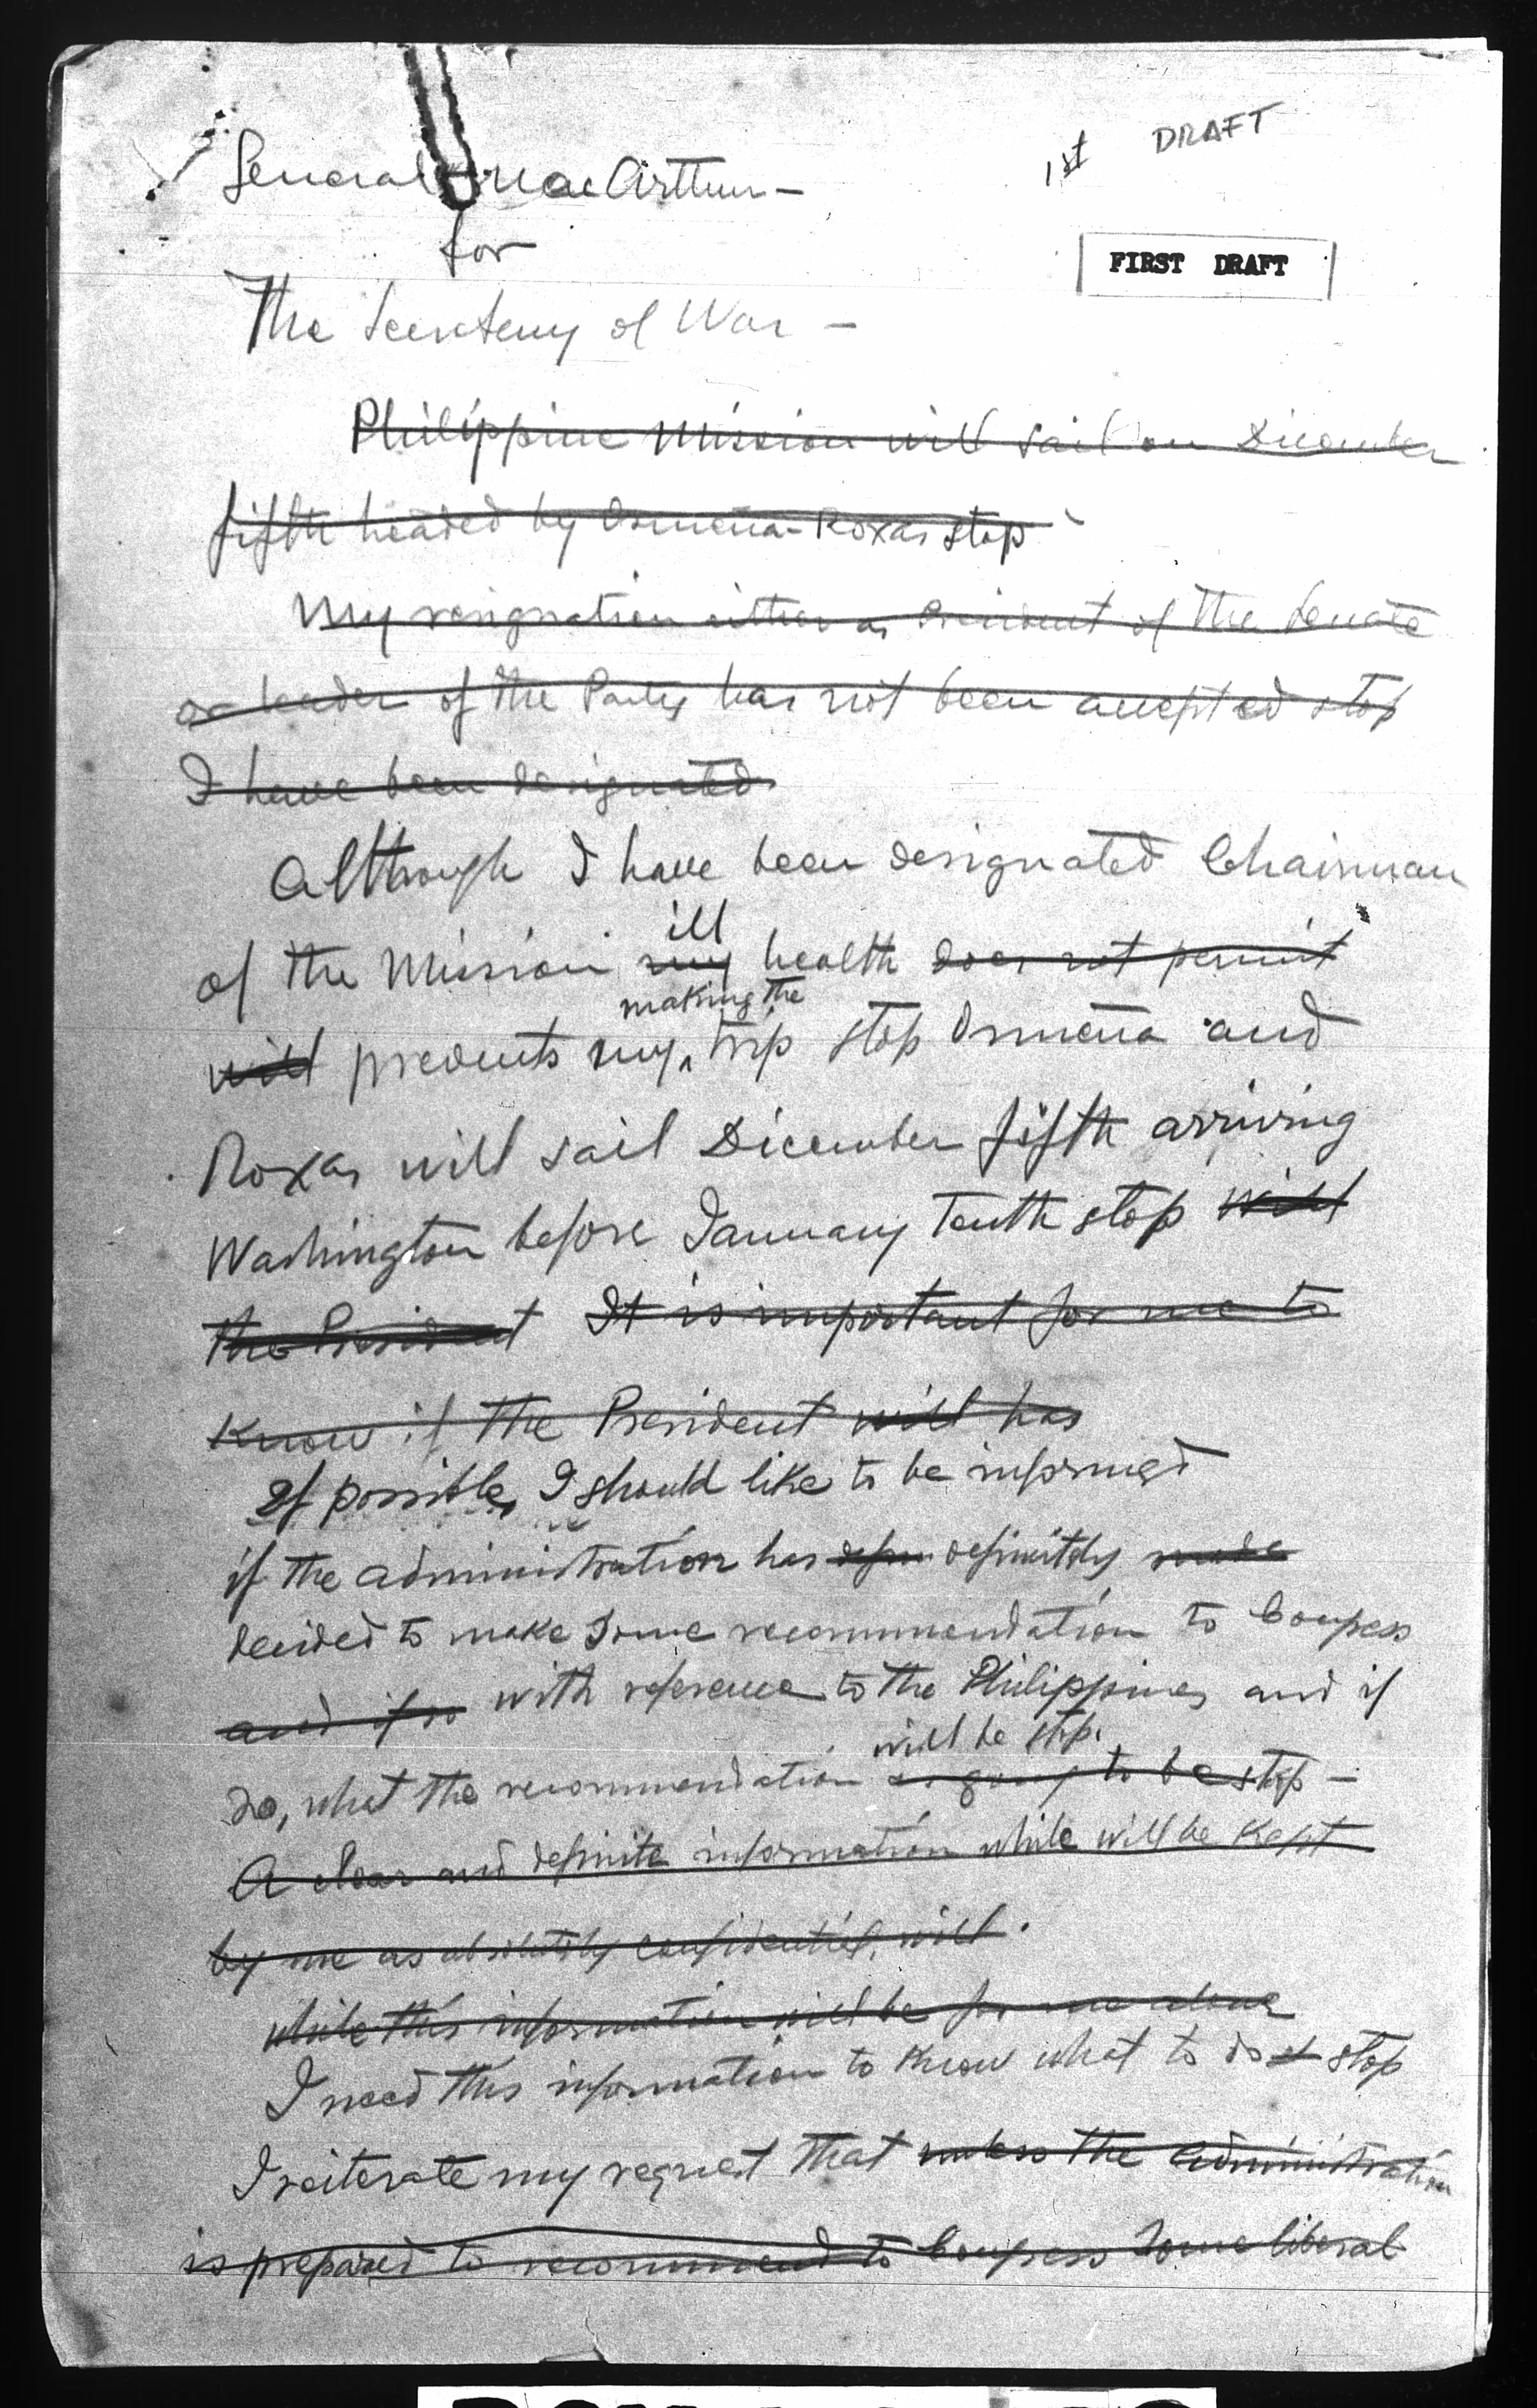 1st DRAFT
General MacArthur —
for
FIRST DRAFT
The Secretary of War —
Philippine Mission will sail on December
fifth headed by Osmeña-Roxas stop
My resignation either as President of the Senate
or leader of the Party has not been accepted stop
I have been designated
Although I have been designated Chairman
ill
of the Mission my health does not permit
making the
will prevents my trip stop Osmeña and
Roxas will sail December fifth arriving
Washington before January Tenth stop will
the President It is important for me to
know if the President will has
If possible, I should like to be informed
if the administration has definitely made
decided to make some recommendation to Congress
and if so with reference to the Philippines and if
will be stop.
so, what the recommendation is going to be stop —
A clear and definite information while will be kept
by me as absolutely confidential, will
while this information will be for me alone
I need this information to know what to do stop
I reiterate my request that unless the administration
is prepared to recommend to Congress some liberal